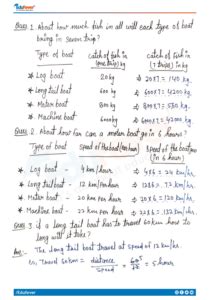 EduRev
Ques 1. About how much fish in all will each type of boat
bring in seven trip?
Type of boat catch of fish in (one trip) kg catch of fish in (7 trips) in kg
* Log boat 20 kg 20×7 = 140 kg.
* Long tail boat 600 kg 600×7 = 4200 kg.
* Motor boat 800 kg
* Machine boat 6000 kg 6000×7 = 42000 kg.
Ques 2. About how far can a boat go in 6 hours?
Type of boat Speed of the boat (per hour) Speed of the boat (in 6 hour)
* Log boat - 4 km/hour 4×6 = 24 km/hr.
* Long tail boat - 12 km per hour 12×6 = 72 km/hr.
* Motor boat - 20 km per hour 20×6 = 120 km/hr.
* Machine boat - 22 km per hour 22×6 = 132 km/hr.
Ques 3 if a long tail boat has to travel 60 km how to
long will it take?
Ans:- The long tail boat travel at speed of 12 km/hr.
travel 60 km = distance / speed = 60 / 12 = 5 hour